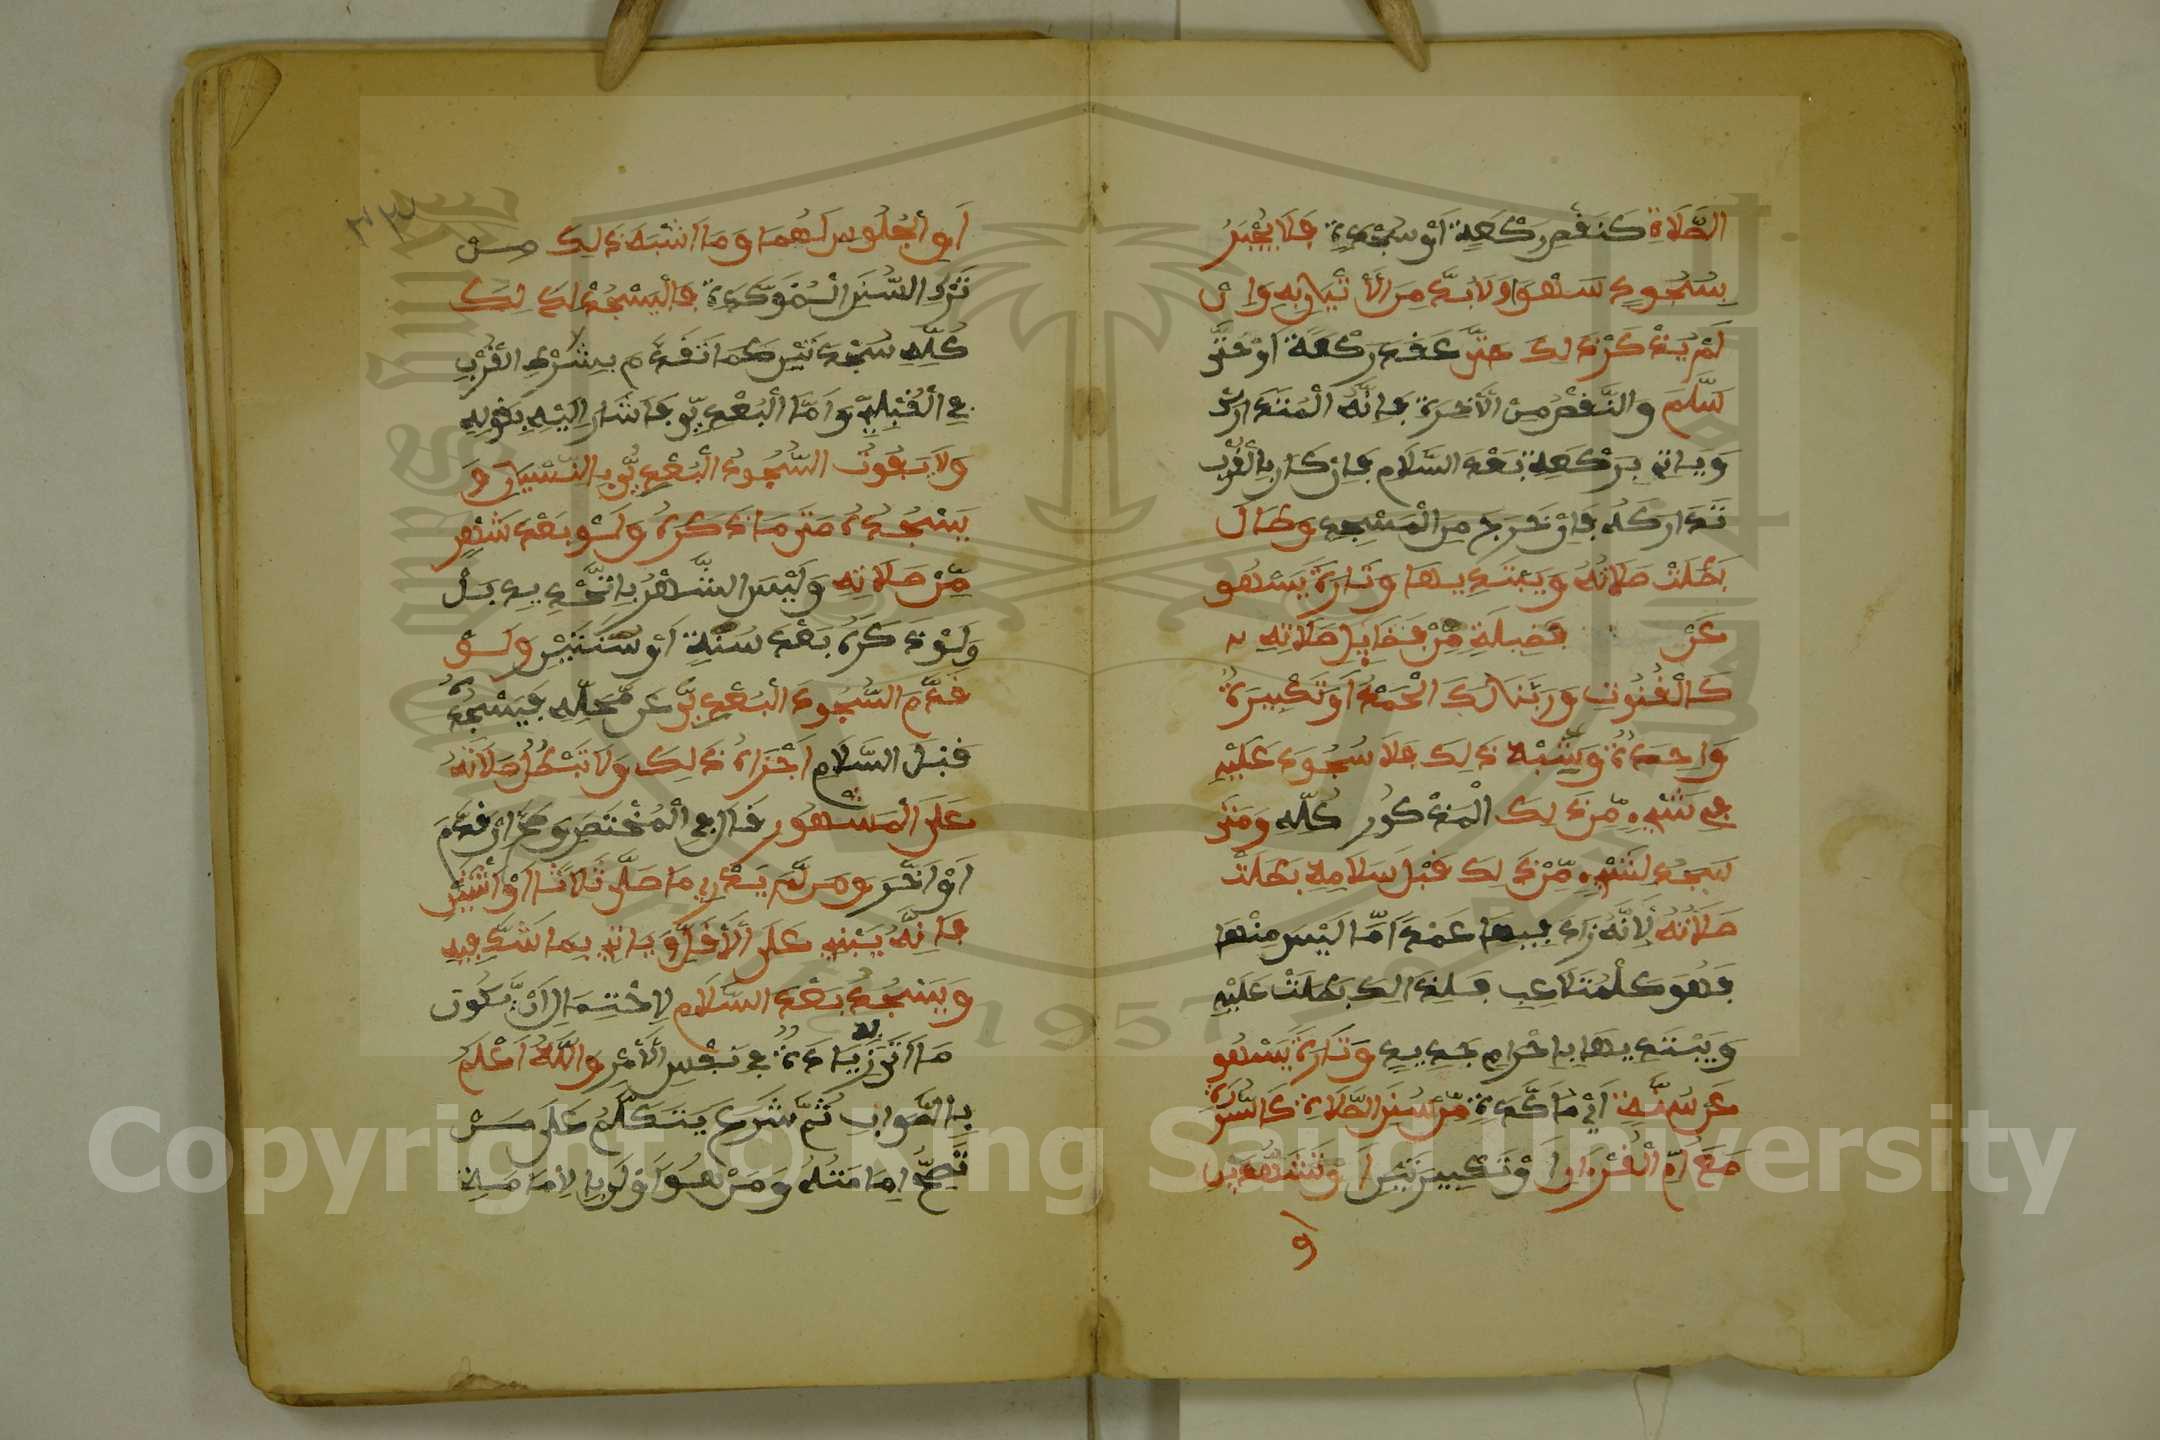 الصَّلَاةِ كَنَقْصِ رَكْعَةٍ أَوْ سَجْدَةٍ فَلَا يُجْبَرُ
بِسُجُودِ سَهْوٍ وَلَا بُدَّ مِنَ الْأَتْيَانِ بِهِ وَإِنْ
لَمْ يَذْكُرْ ذَلِكَ حَتَّى عَقَدَ رَكْعَةً أَوْ حَتَّى
سَلَّمَ وَالنَّقْصُ مِنَ الْأَخِرَةِ فَإِنَّهُ الْمُتَدَارِكُ
وَيَاتِي بِرَكْعَةٍ بَعْدَ السَّلَامِ فَإِن كَانَ بِالْقُرْبِ
تَدَارَكَهُ فَإِنْ خَرَجَ مِنَ الْمَسْجِدِ وَطَالَ
بَطَلَتْ صَلَاتُهُ وَيَبْتَدِيهَا وَتَارَةً يَسْهُو
عَنْ فَضِيلَةٍ مِّنْ فَضَايِلِ صَلَاتِهِ
كَالْقُنُوتِ وَرَبَّنَا لَكَ الْحَمْدُ أَوْ تَكْبِيرَةٌ
وَاحِدَةٌ وَشِبْهِ ذَلِكَ فَلَا سُجُودَ عَلَيْهِ
فِي شَيْءٍ مِّن ذَلِكَ الْمَذْكُورِ كُلِّهِ وَمَتَى
سَجَدَ لِشَيْءٍ مِّنْ ذَلِكَ قَبْلَ سَلَامِهِ بَطَلَتْ
صَلَاتُهُ لِأَنَّهُ زَادَ فِيهَا عَمْدًا مَّا لَيْسَ مِنْهَا
فَهُوَ كَلْمُتَلَاعِبِ فَلِذَالِكَ بَطَلَتْ عَلَيْهِ
وَيَبْتَدِيهَا بِإِحْرَامٍ جَدِيدٍ وَتَارَةً يَسْهُو
عَنْ سُنَّةٍ أَيْ مُؤَكَّدَةٍ مِّنْ سُنَنِ الصَّلَاةِ كَالسُّورَةِ
مَعَ أُمِّ الْقُرْءَانِ أَوْ تَكْبِيرَتَيْنِ أَوْ تَشَهُّدَيْنِ
أَوِ الْجُلُوسِ لَهُمَا وَمَا أَشْبَهَ ذَلِكَ مِنْ
تَرْكِ السُّنَنِ الْمُؤَكَّدَةِ فَالْيَسْجُدْ لِذَلِكَ
كُلِّهِ سَجْدَتَيْنِ كَمَا تَقَدَّمَ بِشَرْطِ الْقُرْبِ
فِي الْقَبْلِيِّ وَأَمَّا الْبَعْدِيُّ فَأَشَارَ إِلَيْهِ بِقَوْلِهِ
وَلَا يَفُوتُ السُّجُودُ الْبَعْدِيُّ بِالنِّسْيَانِ وَ
يَسْجُدُهُ مَتَى مَا ذَكَرَهُ وَلَوْ بَعْدَ شَهْرٍ
مِّنْ صَلَاتِهِ وَلَيْسَ الشَّهْرُ بِالتَّحْدِيدِ بَلْ
وَلَوْ ذَكَرَهُ بَعْدَ سَنَةٍ أَوْ سَنَتَيْنِ وَلَوْ
قَدَّمَ السُّجُودَ الْبَعْدِيَّ عَن مَّحَلِّهِ فَيَسْجُدُهُ
قَبْلَ السَّلَامِ أَجْزَاهُ ذَلِكَ وَلَا تَبْطُلُ صَلَاتُهُ
عَلَى الْمَشْهُورِ قَالَ فِي الْمُخْتَصَرِ وَصَحَّ إِنْ قَدَّمَ
أَوْ أَخَّرَ وَمَن لَّمْ يَدْرِ مَا صَلَّى ثَلَاثًا أَوْ اثْنَيْنِ
فَإِنَّهُ يَبْنِي عَلَى الْأَقَلِّ وَيَاتِي بِمَا شَكَّ فِيهِ
وَيَسْجُدُ بَعْدَ السَّلَامِ لِاحْتِمَالِ أَنْ يَّكُونَ
مَا أَتَى بِهِ زِيَادَةٌ فِي نَفْسِ الْأَمْرِ وَاللَّهُ أَعْلَمُ
بِالصَّوَابِ ثُمَّ شَرَعَ يَتَكَلَّمُ عَلَى مَنْ
تَصِحُّ إِمَامَتُهُ وَمَنْ هُوَ أَوْلَى بِالْإِمَامَةِ
Copyright © King Saud University
1957